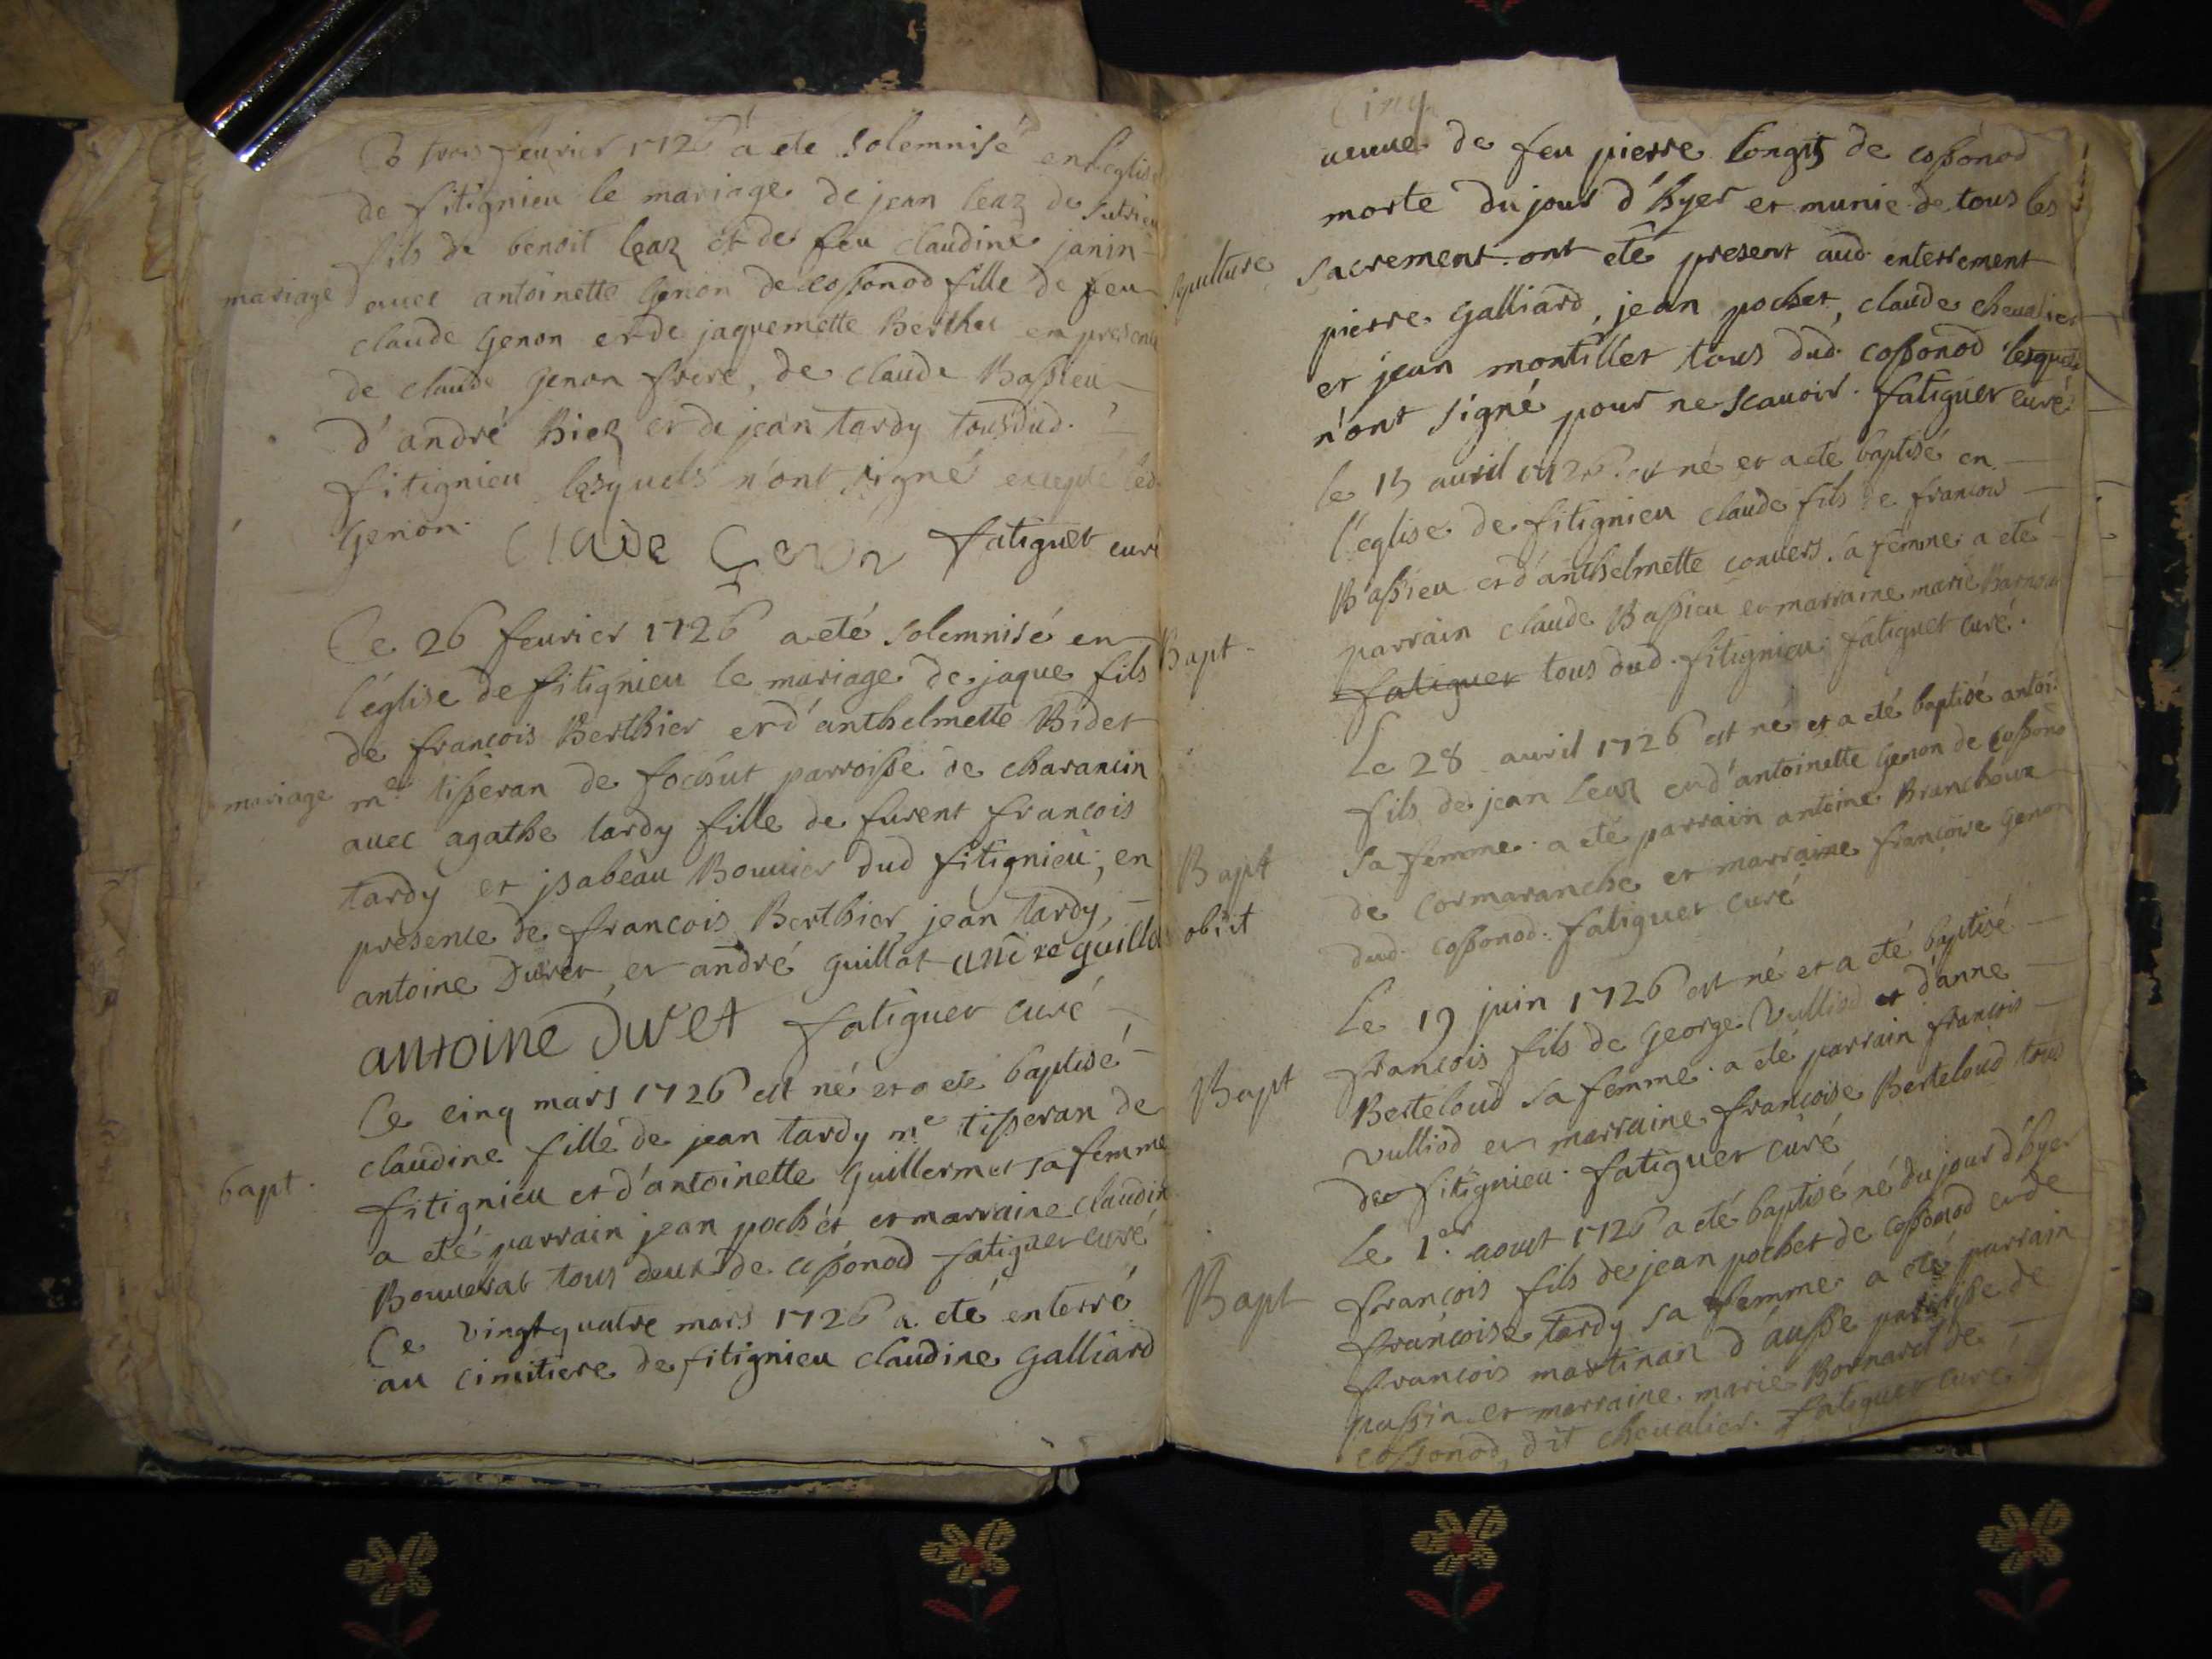 Ce trois feurier 1726 a ete solemnisé en l'eglise
de fitignieu le mariage de jean leaz de sutrieu
fils de benoit leaz et de feu claudine janin
mariage
auec antoinette Genon de cossonod fille de feu
claude Genon et de jaquemette Berthet en presence
de claude Genon frere, de claude Bassieu
d'andré Biez et de jean tardy tous dud.
fitignieu lesquels n'ont signé excepté led.
Genon. Claude Genon fatiguet curé
Ce 26 feurier 1726 a eté solemnisé en
l'église de fitignieu le mariage de jaque fils
de françois Berthier et d'anthelmette Bidet
mariage
me tisseran de fochut parroisse de charancin
auec agathe tardy fille de furent francois
tardy et jsabeau Bouuier dud fitignieu, en
presence de francois Berthier, jean tardy,
antoine Duret, et andré guillot andre guillo
antoine Duret fatiguet curé
Ce cinq mars 1726 est né et a eté baptisé
claudine fille de jean tardy me tisseran de
bapt.
fitignieu et d'antoinette Guillermet sa femme
a eté parrain jean pochet et marraine claudin
Bouuerat tous deux de cossonod fatiguet curé
Ce vingtquatre mars 1726 a eté enterré
au cimitiere de fitignieu claudine Galliard
Cinq
ueuue de feu pierre Longis de cossonod
morte du jour d'hyer et munie de tous les
sepulture
sacrement. ont eté present aud. enterrement
pierre Galliard, jean pochet, claude cheualier
et jean montillet tous dud. cossonod lesquels
n'ont signé pour ne scauoir. fatiguet curé
le 15 auril 1726 est né et a eté baptisé en
l'église de fitignieu claude fils de francois
Bassieu et d'anthelmette conuers sa femme a eté
Bapt.
parrain claude Bassieu et marraine marie
fatiguet tous dud. fitignieu fatiguet curé.
Le 28 auril 1726 est né et a eté baptisé antoi.
fils de jean leaz et d'antoinette Genon de cossono
Bapt
sa femme. a eté parrain antoine Branchoux
obiit
de Cormaranche et marraine françoise Genon
dud. cossonod. fatiguet curé
Le 19 juin 1726 est né et a eté baptisé
francois fils de George Vulliod et d'anne
Bapt
Berteloud sa femme. a eté parrain françois
Vulliod et marraine françoise Berteloud tous
de fitignieu. fatiguet curé
Le 1.er aout 1726 a eté baptisé né du jour d'hyer
Bapt
françois fils de jean pochet de cossonod et de
francoise tardy sa femme a eté parrain
francois martinan d'ausse parroisse de
passin et marraine marie Bornard de
cossonod, dit cheualier. fatiguet curé